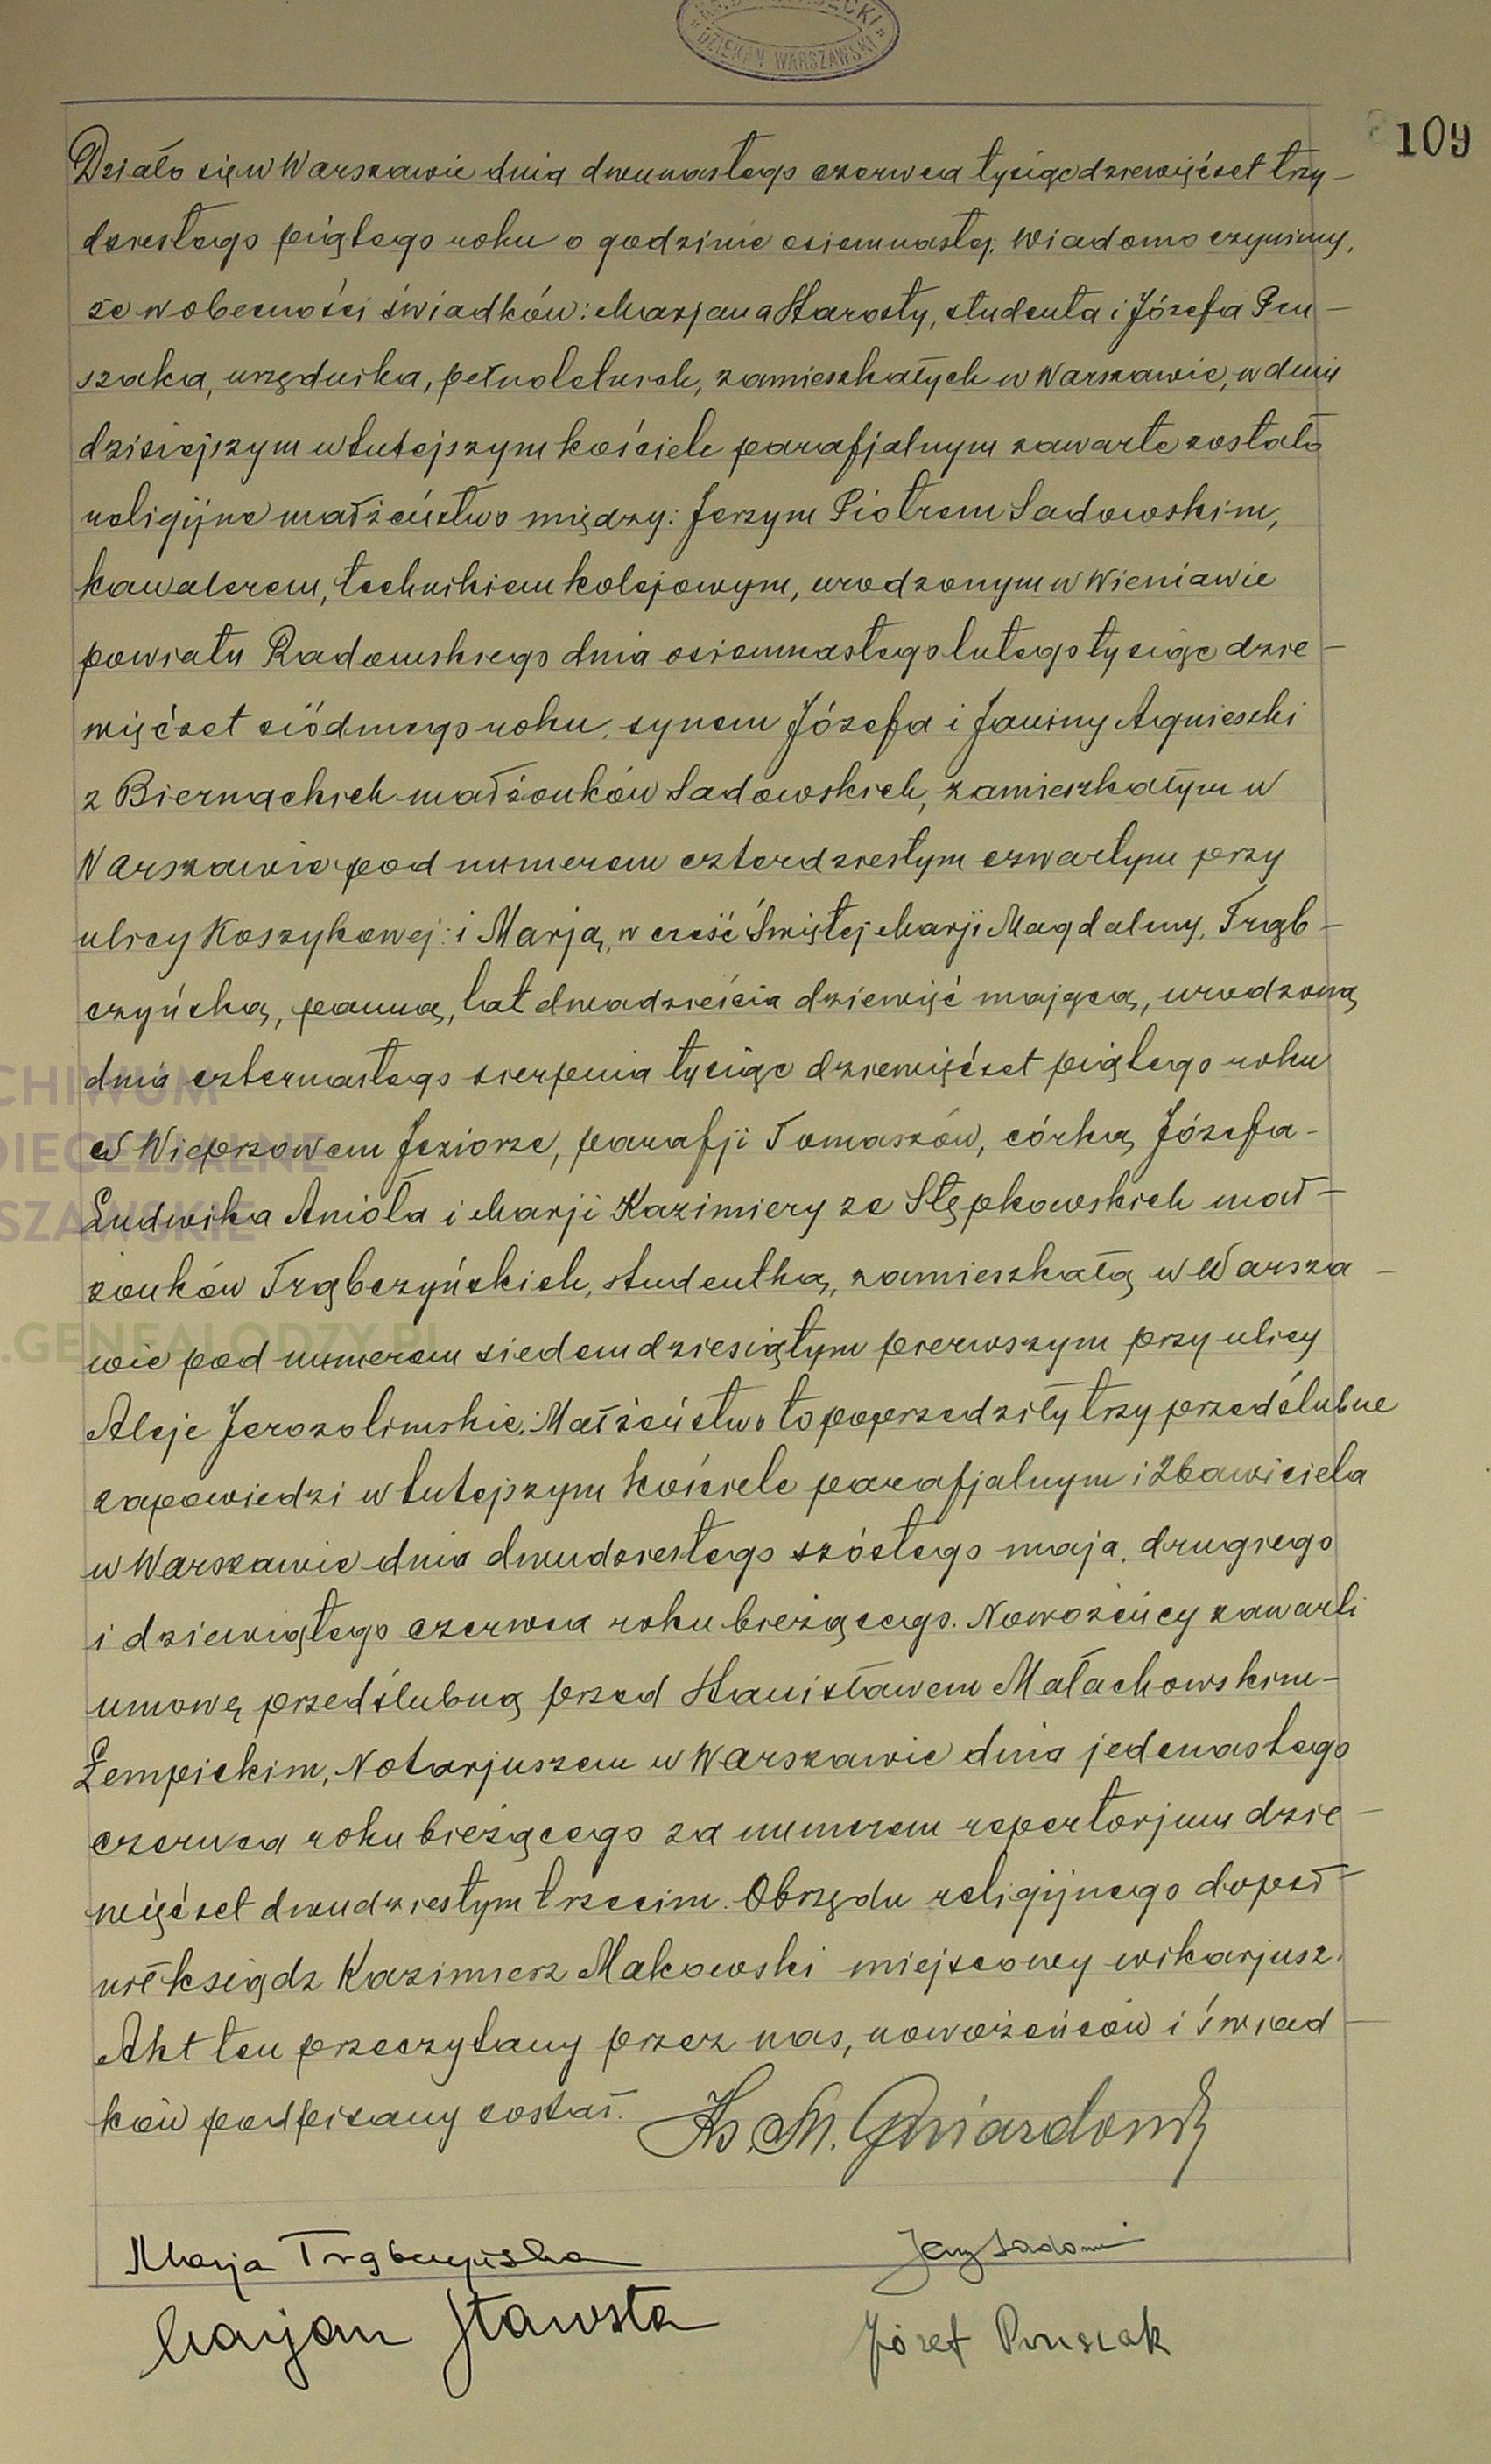 DZIEKAN WARSZAWSKI
109
Działo się w Warszawie dnia dwunastego czerwca tysiąc dziewięćset trzy-
dziestego piątego roku o godzinie osiemnastej. Wiadomo czynimy,
że w obecności świadków: Marjana Starosty, studenta i Józefa Pru-
szaka, urzędnika, pełnoletnich, zamieszkałych w Warszawie, w dniu
dzisiejszym w tutejszym kościele parafjalnym zawarte zostało
religijne małżeństwo między: Jerzym Piotrem Sadowskim,
kawalerem, technikiem kolejowym, urodzonym w Wieniawie
powiatu Radomskiego dnia osiemnastego lutego tysiąc dzie-
więćset siódmego roku, synem Józefa i Janiny Agnieszki
z Biernackich małżonków Sadowskich, zamieszkałym w
Warszawie pod numerem czterdziestym czwartym przy
ulicy Koszykowej: i Marją, w cześć Świętej Marji Magdaleny, Trąb-
czyńską, panną, lat dwadzieścia dziewięć mającą, urodzoną
dnia czternastego sierpnia tysiąc dziewięćset piątego roku
w Wieprzowem Jeziorze, parafji Tomaszów, córką Józefa-
Ludwika Anioła i Marji Kazimiery ze Stępkowskich mał-
żonków Trąbczyńskich, studentką, zamieszkałą w Warsza-
wie pod numerem siedemdziesiątym pierwszym przy ulicy
Aleje Jerozolimskie. Małżeństwo to poprzedziły trzy przedślubne
zapowiedzi w tutejszym kościele parafjalnym i Zbawiciela
w Warszawie dnia dwudziestego szóstego maja, drugiego
i dziewiątego czerwca roku bieżącego. Nowożeńcy zawarli
umowę przedślubną przed Stanisławem Małachowskim-
Łempickim, Notarjuszem w Warszawie dnia jedenastego
czerwca roku bieżącego za numerem repertorjum dzie-
więćset dwudziestym trzecim. Obrzędu religijnego dopeł-
nił ksiądz Kazimierz Makowski miejscowy wikarjusz.
Akt ten przeczytany przez nas, nowożeńców i świad-
ków podpisany został. Ks. M. Gwiazdowski
Marja Trąbczyńska Jerzy Sadowski
Marjan Starosta Józef Pruszak
CHIWUM
DIECEZJALNE
SZAWSKIE
.GENEALODZY.PL